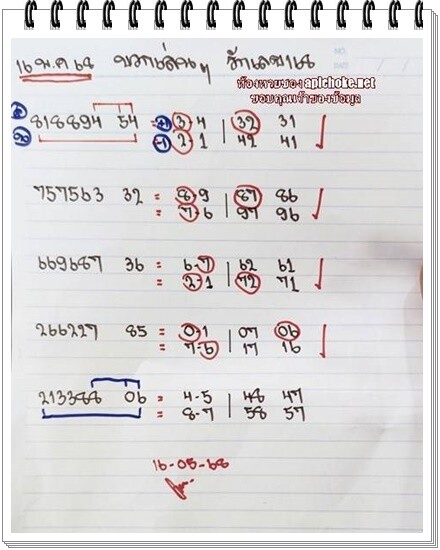 16 พ.ค 68 บวกเล่นๆ
ห้องหวยซอง aplchoke.net
ขอบคุณเจ้าของข้อมูล
818894 54 = 3-4 | 32 31
= 2-1 | 42 41
757563 32 = 8-9 | 87 86
= 7-6 | 97 96
669687 36 = 6-7 | 62 61
= 2-1 | 72 71
266227 85 = 0-1 | 07 06
= 7-6 | 17 16
213388 06 = 4-5 | 48 47
= 8-7 | 58 57
16-05-68